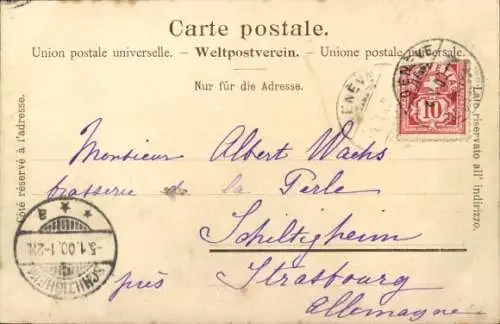 Carte postale.
Union postale universelle. – Weltpostverein. – Unione postale universale.
Nur für die Adresse.
Côté réservé à l'adresse.
Lato riservato all' indirizzo.
GENÈVE
10
Monsieur Albert Wachs
brasserie de la Perle
Schiltigheim
près Strasbourg
Allemagne
* * a
-5.1.00.1-2N.
SCHILTIGHEIM